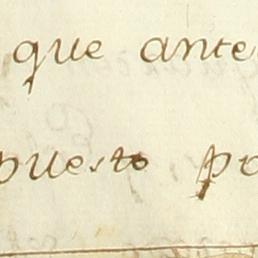 que ante
puesto po